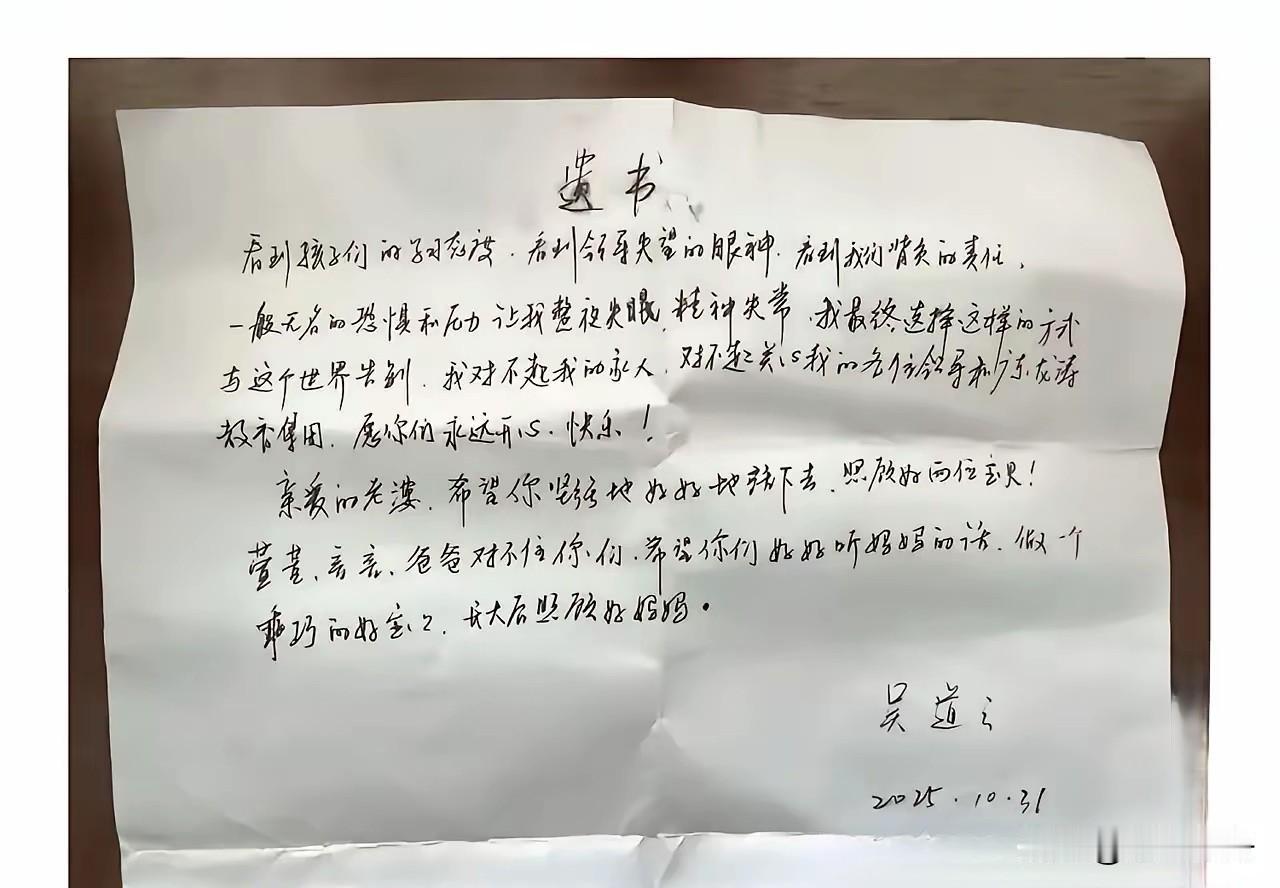 遗书
看到孩子们的学习态度，看到领导失望的眼神，看到我们背负的责任，
一般无名的恐惧和压力让我整夜失眠，精神失常，我最终选择这样的方式
与这个世界告别，我对不起我的家人，对不起关心我的各位领导和陈龙涛
教育集团，愿你们永远开心、快乐！
亲爱的老婆，希望你坚强地好好地活下去，照顾好两位宝贝！
萱萱、言言、爸爸对不住你们，希望你们好好听妈妈的话，做一个
乖巧的好宝宝，长大后照顾好妈妈。
吴道
2025.10.31